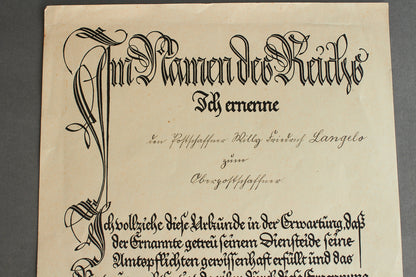 Im Namen des Reichs
Ich ernenne
den Postschaffner Willy Friedrich Langelo
zum
Oberpostschaffner
Ich vollziehe diese Urkunde in der Erwartung, daß
der Ernannte getreu seinem Diensteide seine
Amtspflichten gewissenhaft erfüllt und das